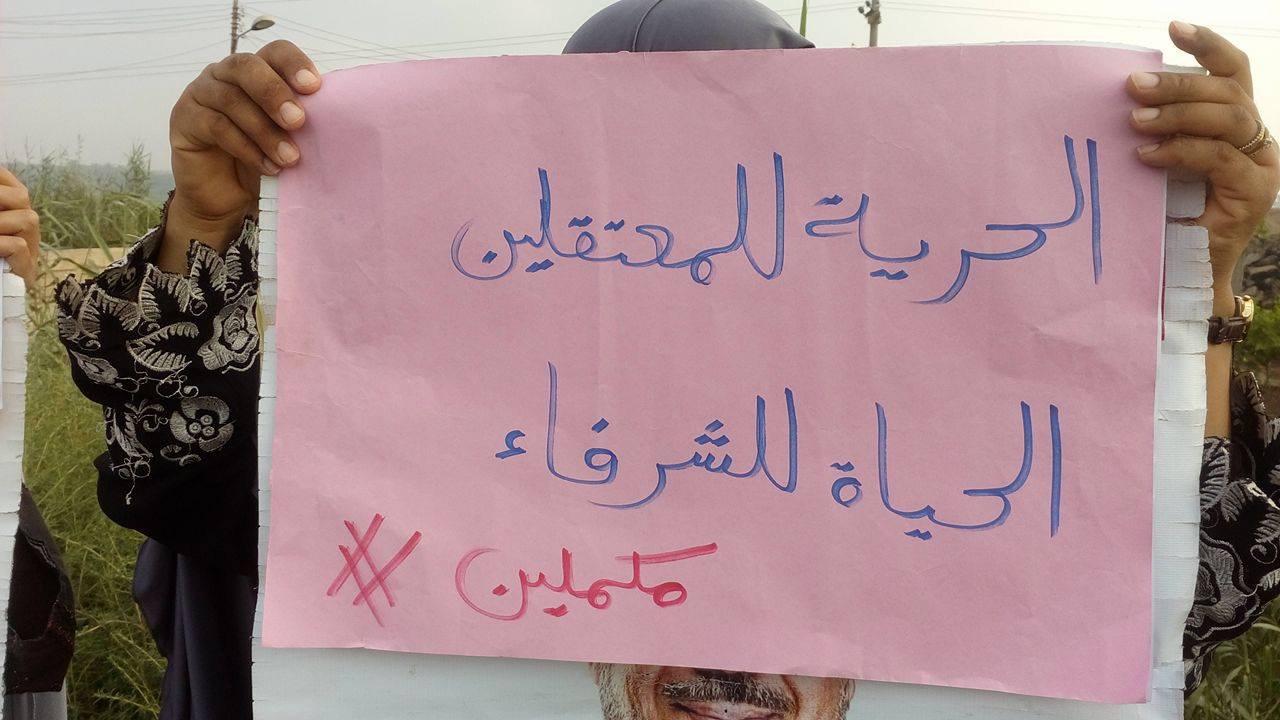 الحرية للمعتقلين
الحياة للشرفاء
مكملين #